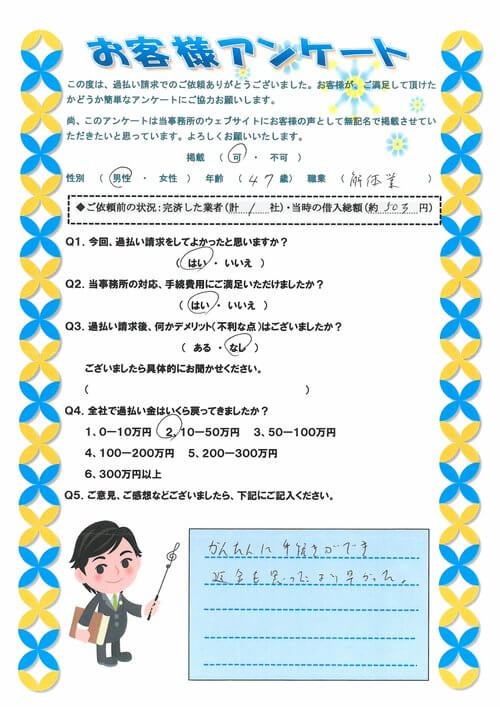 お客様アンケート
この度は、過払い請求でのご依頼ありがとうございました。お客様が、ご満足して頂けた
かどうか簡単なアンケートにご協力お願いします。
尚、このアンケートは当事務所のウェブサイトにお客様の声として無記名で掲載させてい
ただきたいと思っています。よろしくお願いいたします。
掲載 ( 可 ・ 不可 )
性別 ( 男性 ・ 女性 ) 年齢 ( 47 歳) 職業 ( 解体業 )
◆ご依頼前の状況:完済した業者(計 1 社)・当時の借入総額(約 50万 円)
Q1. 今回、過払い請求をしてよかったと思いますか?
( はい ・ いいえ )
Q2. 当事務所の対応、手続費用にご満足いただけましたか?
( はい ・ いいえ )
Q3. 過払い請求後、何かデメリット(不利な点)はございましたか?
( ある ・ なし )
ございましたら具体的にお聞かせください。
( )
Q4. 全社で過払い金はいくら戻ってきましたか?
1、0-10万円 2、10-50万円 3、50-100万円
4、100-200万円 5、200-300万円
6、300万円以上
Q5. ご意見、ご感想などございましたら、下記にご記入ください。
かんたんに手続きができ
返金も思ったより早かった。